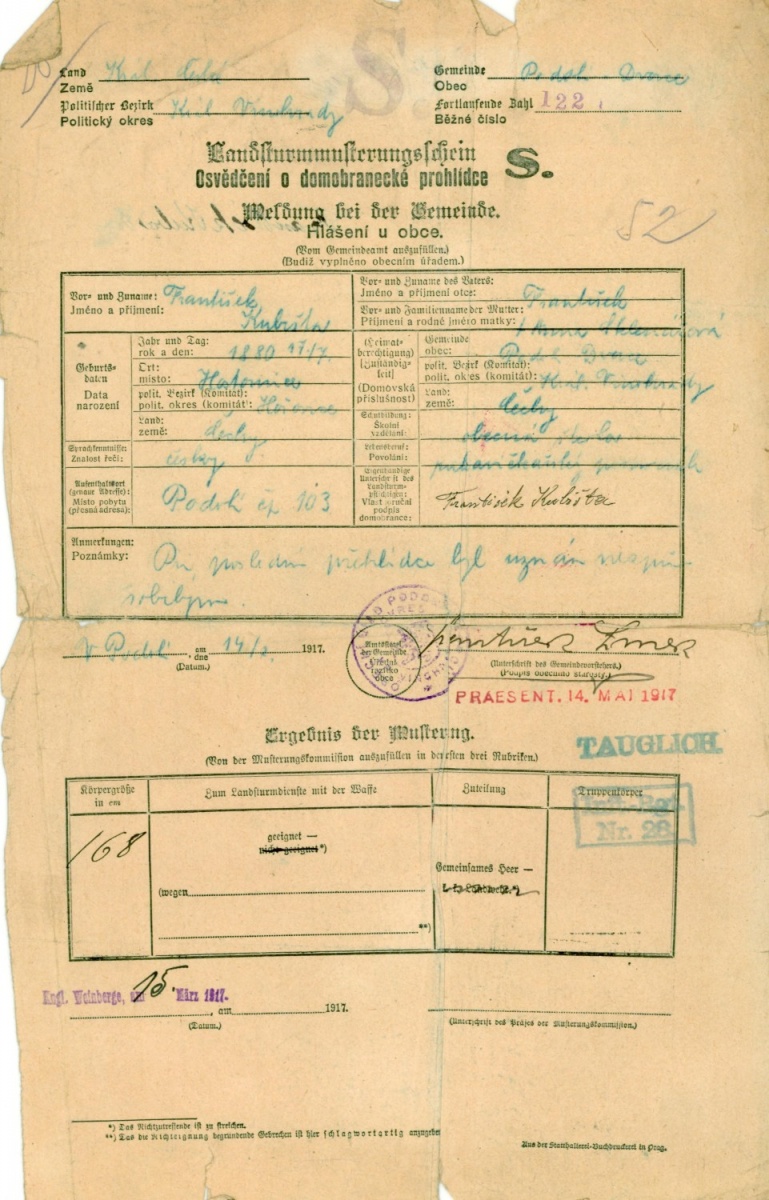 Land Král. 
Země
Gemeinde Podolí - Dvorce
Obec
Politischer Bezirk Král. Vinohrady
Politický okres
Fortlaufende Zahl 122
Běžné číslo
Landsturmmusterungsschein
Osvědčení o domobranecké prohlídce
S.
Meldung bei der Gemeinde.
Hlášení u obce.
52
(Vom Gemeindeamt auszufüllen.)
(Budiž vyplněno obecním úřadem.)
Vor- und Zuname: František
Jméno a příjmení: Kubišta
Vor- und Zuname des Vaters:
Jméno a příjmení otce: František
Vor- und Familienname der Mutter:
Příjmení a rodné jméno matky: Anna Sklenářová
Geburtsdaten
Data narození
Jahr und Tag:
rok a den: 1880 17/7.
Ort:
místo:
polit. Bezirk (Komitat):
polit. okres (komitát):
Land:
země: Čechy
(Heimatberechtigung)
[Zuständigkeit]
(Domovská příslušnost)
Gemeinde
obec: Podol. Dvorce
polit. Bezirk (Komitat):
polit. okres (komitát): Král. Vinohrady
Land:
země: Čechy
Sprachkenntnisse:
Znalost řečí: česky
Schulbildung:
Školní vzdělání: obecná škola
Lebensberuf:
Povolání:
Aufenthaltsort
(genaue Adresse):
Místo pobytu
(přesná adresa):
Podolí čp 103
Eigenhändige
Unterschrift des
Landsturmpflichtigen:
Vlastnoruční
podpis
domobrance:
František Kubišta
Anmerkungen:
Poznámky: Při poslední přehlídce byl uznán nezpů-
sobilým.
V Podolí am
dne 14/5. 1917.
(Datum.)
Amtssiegel
der Gemeinde
Úřední
razítko
obce
(Unterschrift des Gemeindevorstehers.)
(Podpis obecního starosty.)
PRAESENT. 14. MAI 1917
Ergebnis der Musterung.
(Von der Musterungskommission auszufüllen in der ersten drei Rubriken.)
TAUGLICH.
Körpergröße
in cm
Zum Landsturmdienste mit der Waffe
Zuteilung
Truppenkörper
168
geeignet —
nicht geeignet*)
(wegen
**)
Gemeinsames Heer —
Inft.-Rgt.
Nr. 28
Kngl. Weinberge, am 15. März 1917.
, am 1917.
(Datum.)
(Unterschrift des Präses der Musterungskommission.)
*) Das Nichtzutreffende ist zu streichen.
**) Das die Nichteignung begründende Gebrechen ist hier schlagwortartig anzugeben
Aus der Statthalterei-Buchdruckerei in Prag.